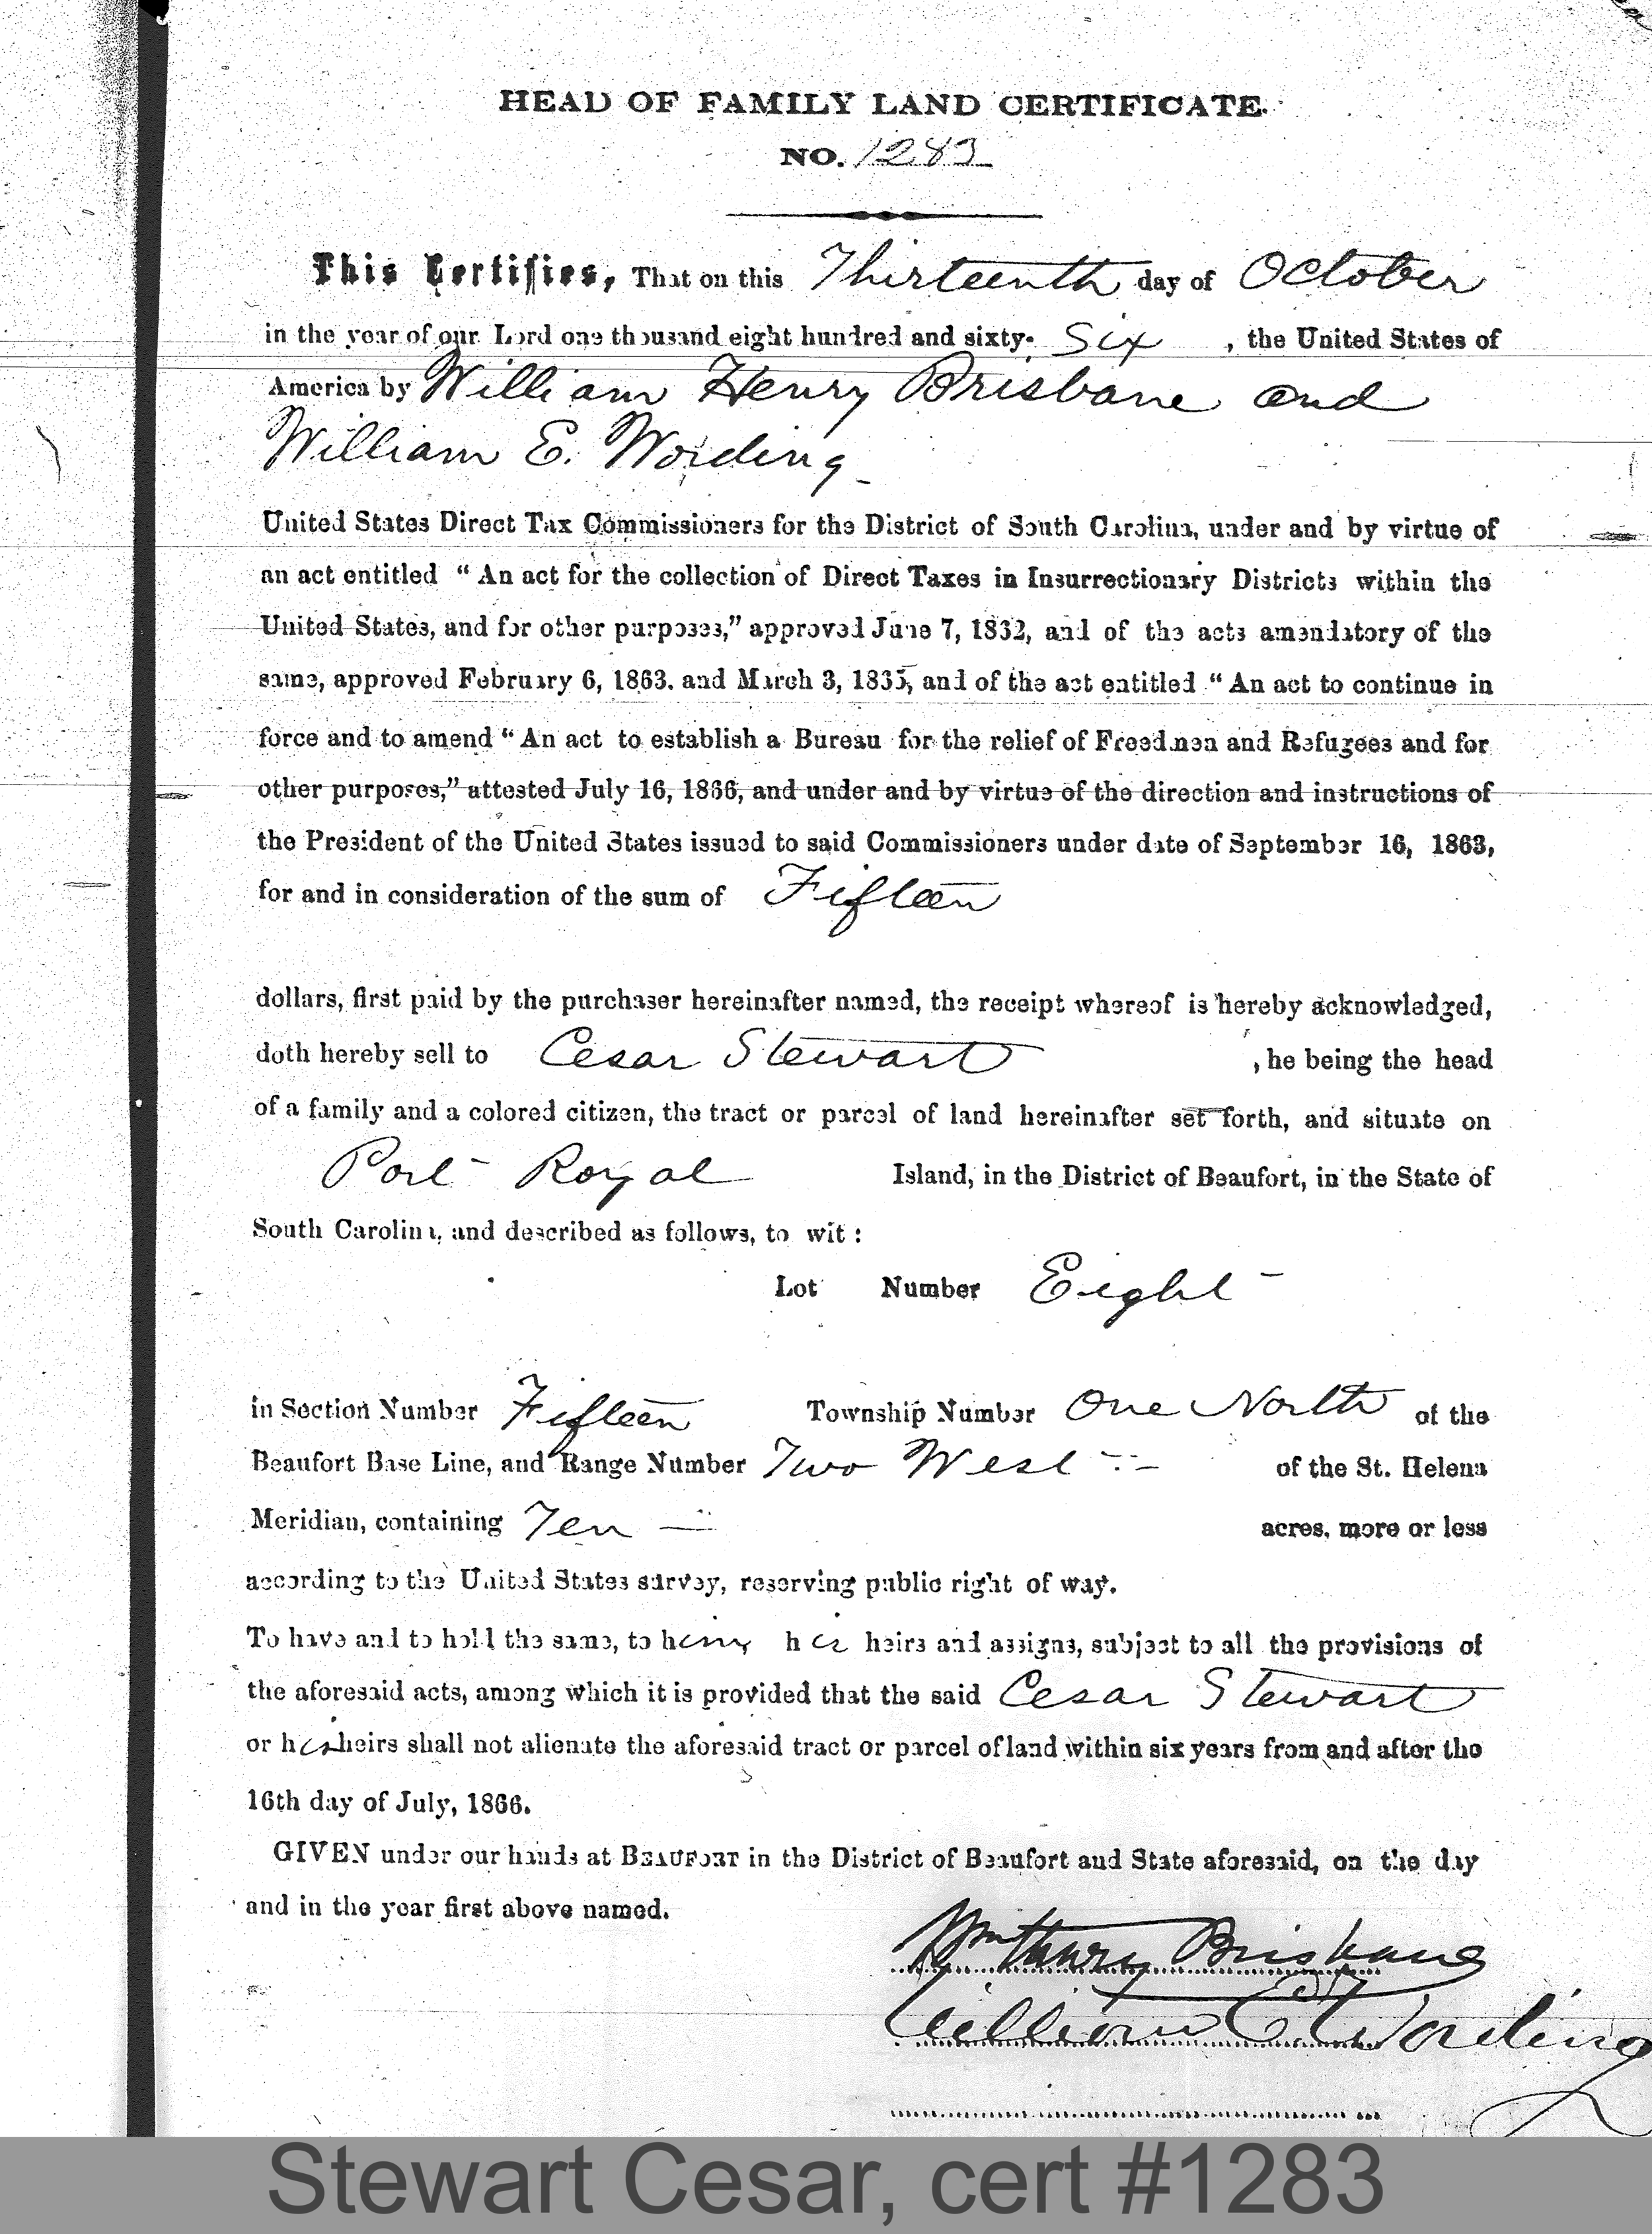 HEAD OF FAMILY LAND CERTIFICATE.
NO. 1283
This Certifies, That on this Thirteenth day of October
in the year of our Lord one thousand eight hundred and sixty- Six , the United States of
America by William Henry Brisbane and
William E. Wording
United States Direct Tax Commissioners for the District of South Carolina, under and by virtue of
an act entitled “ An act for the collection of Direct Taxes in Insurrectionary Districts within the
United States, and for other purposes,” approved June 7, 1862, and of the acts amendatory of the
same, approved February 6, 1863. and March 3, 1865, and of the act entitled “ An act to continue in
force and to amend “ An act to establish a Bureau for the relief of Freedmen and Refugees and for
other purposes,” attested July 16, 1866, and under and by virtue of the direction and instructions of
the President of the United States issued to said Commissioners under date of September 16, 1863,
for and in consideration of the sum of Fifteen
dollars, first paid by the purchaser hereinafter named, the receipt whereof is hereby acknowledged,
doth hereby sell to Cesar Stewart , he being the head
of a family and a colored citizen, the tract or parcel of land hereinafter set forth, and situate on
Port Royal Island, in the District of Beaufort, in the State of
South Carolina, and described as follows, to wit :
Lot Number Eight
in Section Number Fifteen Township Number One North of the
Beaufort Base Line, and Range Number Two West of the St. Helena
Meridian, containing Ten acres, more or less
according to the United States survey, reserving public right of way.
To have and to hold the same, to him his heirs and assigns, subject to all the provisions of
the aforesaid acts, among which it is provided that the said Cesar Stewart
or his heirs shall not alienate the aforesaid tract or parcel of land within six years from and after the
16th day of July, 1866.
GIVEN under our hands at BEAUFORT in the District of Beaufort and State aforesaid, on the day
and in the year first above named.
Wm Henry Brisbane
William E. Wording
Stewart Cesar, cert #1283